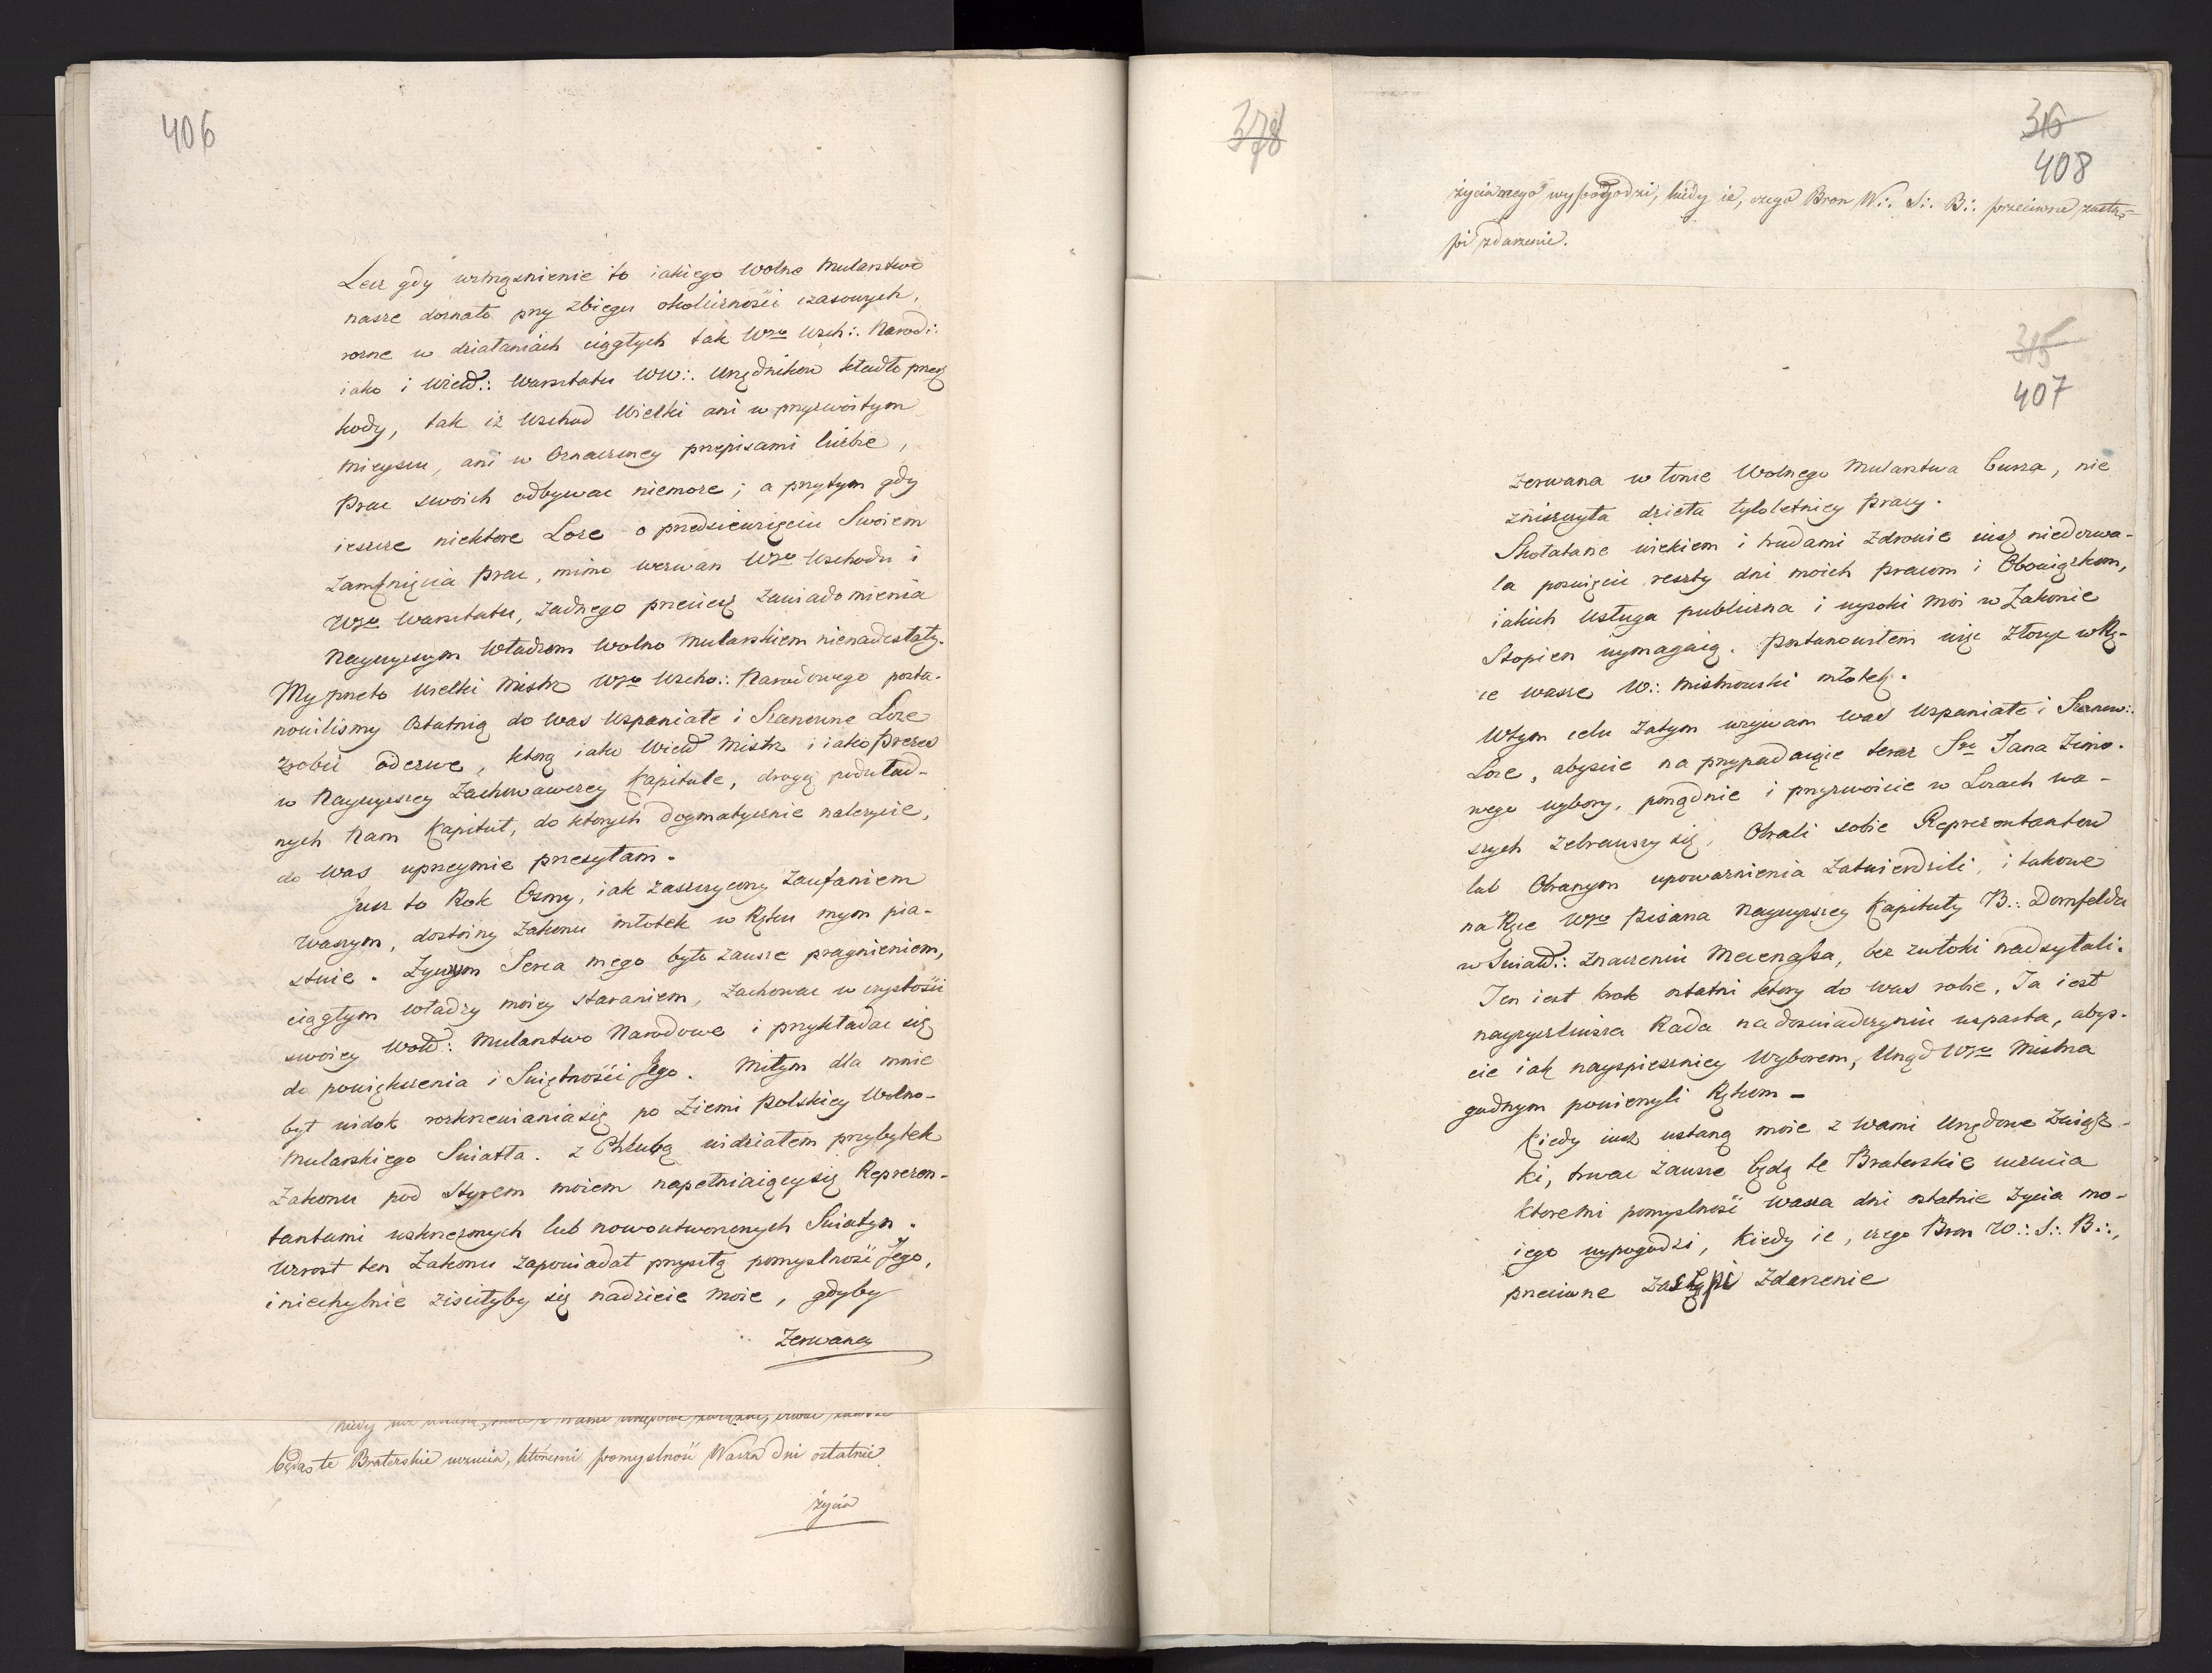 406
Lecz gdy wzmągnienie to iakiego Wolno Mularstwo
nasze doznało przy zbiegu okolicznośći czasowych,
rożne w działaniach ciągłych tak Wgo Wsch∴ Narod∴
iako i Wield∴ Warsztatu WW∴ Urzędnikow kładło przesz
kody, tak iż Wschod Wielki ani w przyzwoitym
Mieyscu, ani w Oznaczoney przepisami liczbie,
Prac swoich odbywac niemoże; a przytym gdy
ieszcze niektore Loże o przedsiewzięciu Swoiem
Zamknięcia prac, mimo wezwan Wgo Wschodu i
Wgo Warsztatu, żadnego przeciesz zawiadomienia
Naywyższym Władzom Wolno Mularskiem nienadesłały.
My przeto Wielki Mistrz Wgo Wscho∴ Narodowego posta-
nowilismy Ostatnią do Was Wspaniałe i Szanowne Loże
zrobić odezwę, ktorą iako Wield Mistrz i iako Prezes
w Naywyższey Zachowawczey Kapitule, drogą podwład-
nych Nam Kapituł, do ktorych dogmatycznie należycie,
do Was uprzeymie przesyłam.
Jusz to Rok Osmy, iak zaszczycony Zaufaniem
Waszym, dostoiny Zakonu młotek w Ręku mym pia-
stuie. Żywym Serca mego było zawsze pragnieniem,
ciągłym władzy moiey staraniem, Zachowac w czystośći
swoiey Wold: Mularstwo Narodowe i przykładac się
do powiększenia i Swiętnośći Jego. Miłym dla mnie
był widok rozkrzewiania się po Ziemi Polskiey Wolno-
Mularskiego Swiatła. z Chlubą widziałem przybytek
Zakonu pod Styrem moiem napełniaiący się Reprezen-
tantami wskrzeszonych lub nowoutworzonych Swiatyn.
Wzrost ten Zakonu zapowiadał przyszłą pomyslność Jego,
i niechybnie ziściłyby się nadzieie moie, gdyby
Zerwana
będą te Braterskie uczucia, któremi pomyslność Wasza dni ostatnie
życia
378
316
408
życia mego wypogodzi, kiedy ie, czego Bron W∴ S∴ B∴ przeciwne zastą-
pi zdarzenie.
315
407
Zerwana w łonie Wolnego Mularstwa burza, nie
zniszczyła dzieła tyloletniey pracy.
Skołatane wiekiem i trudami Zdrowie iusz niedozwa-
la poswięcić reszty dni moich pracom i Obowiązkom,
iakich Usługa publiczna i wysoki moi w Zakonie
Stopien wymagaią. Postanowiłem więc złożyc w Rę-
ce wasze W∴ Mistrzowski młotek.
Wtym celu Zatym wzywam Was Wspaniałe i Szanow∴
Loże, abyscie na przypadaiące teraz Sgo Jana Zimo-
wego wybory, porządnie i przyzwoicie w Lożach wa-
szych Zebrawszy się, Obrali sobie Reprezentantow
lub Obranym upoważnienia Zatwierdzili, i takowe
na Ręce Wgo Pisarza Naywyższey Kapituły B∴ Dornfelda
w Swiatd∴ Znaczeniu Mecenassa, bez zwłoki nadsyłali.
Ten iest krok ostatni ktory do Was robię. Ta iest
nayżyczliwsza Rada na doswiadczyniu wsparta, abys-
cie iak nayspieszniey Wyborem, Urząd Wgo Mistrza
godnym powierzyli Rękom –
Kiedy iusz ustaną moie z wami Urzędowe Związ-
ki, trwac Zawsze będą te Braterskie uczucia
ktoremi pomyslność wasza dni ostatnie życia mo-
iego wypogodzi, kiedy ie, czego Bron W∴ S∴ B∴,
przeciwne zastąpi Zdarzenie